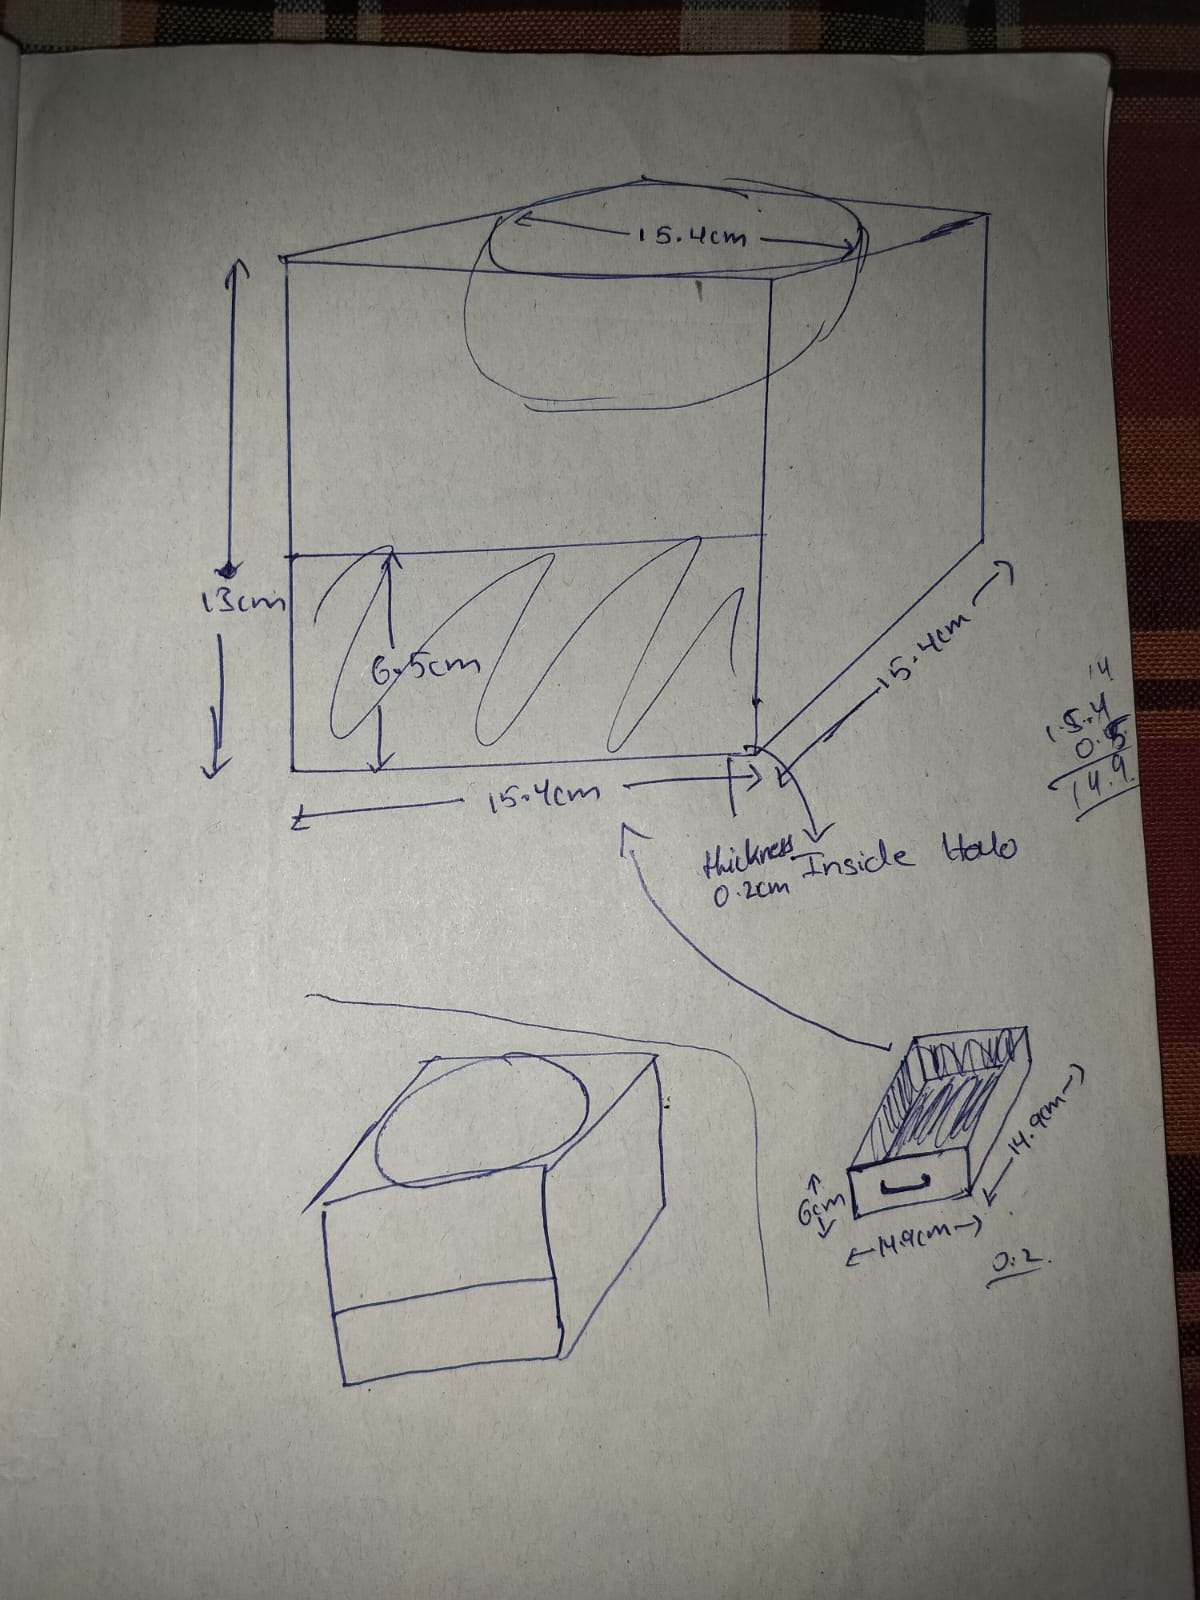 15.4cm
13cm
6.5cm
15.4cm
15.4cm
14
15.4
0.5
14.9
thickness
0.2cm
Inside Holo
6cm
14.9cm
14.9cm
0.2